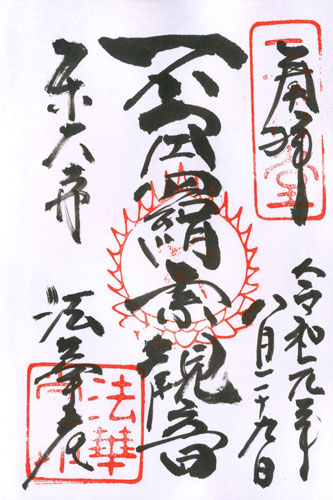 奉拝
令和元年
八月二十九日
不空羂索觀音
東大寺
法華堂
法華